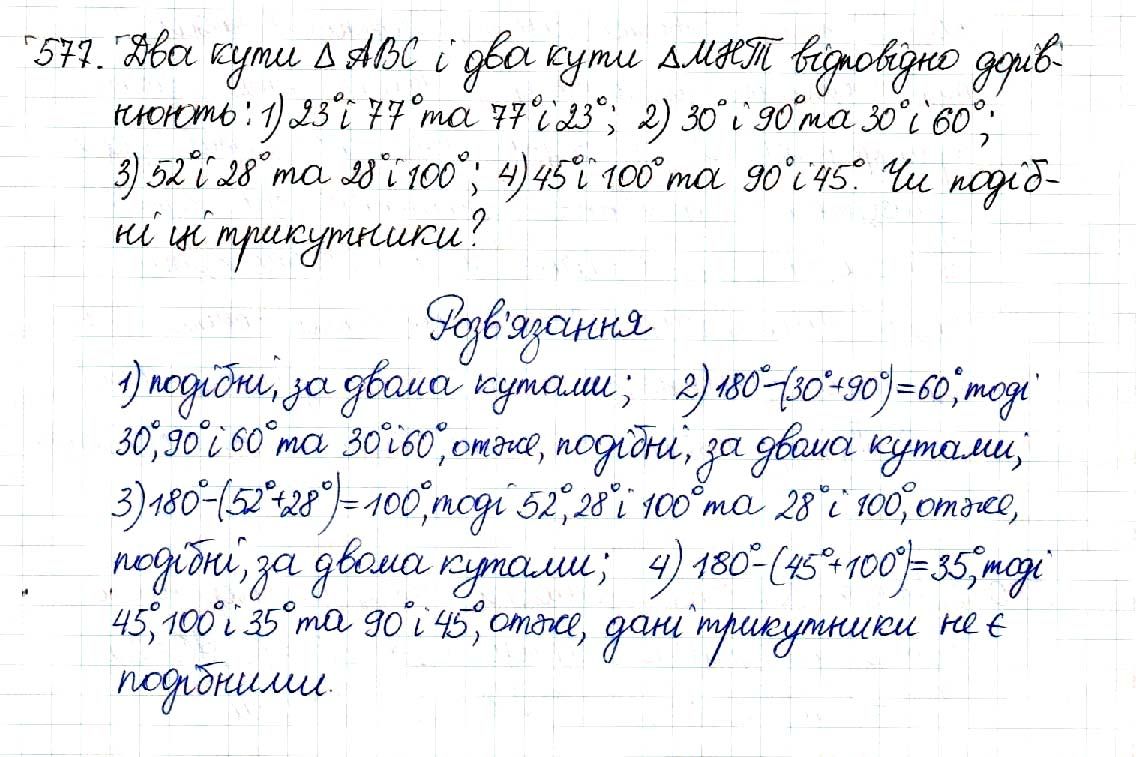 577. Два кути △ ABC і два кути △МНТ відповідно дорів-
нюють: 1) 23° і 77° та 77° і 23°; 2) 30° і 90° та 30° і 60°;
3) 52° і 28° та 28° і 100°; 4) 45° і 100° та 90° і 45°. Чи подіб-
ні ці трикутники?
Розв'язання
1) подібні, за двома кутами; 2) 180°-(30°+90°)=60°, тоді
30°, 90° і 60° та 30° і 60°, отже, подібні, за двома кутами;
3) 180°-(52°+28°)=100°, тоді 52°, 28° і 100° та 28° і 100°, отже,
подібні, за двома кутами; 4) 180°-(45°+100°)=35°, тоді
45°, 100° і 35° та 90° і 45°, отже, дані трикутники не є
подібними.